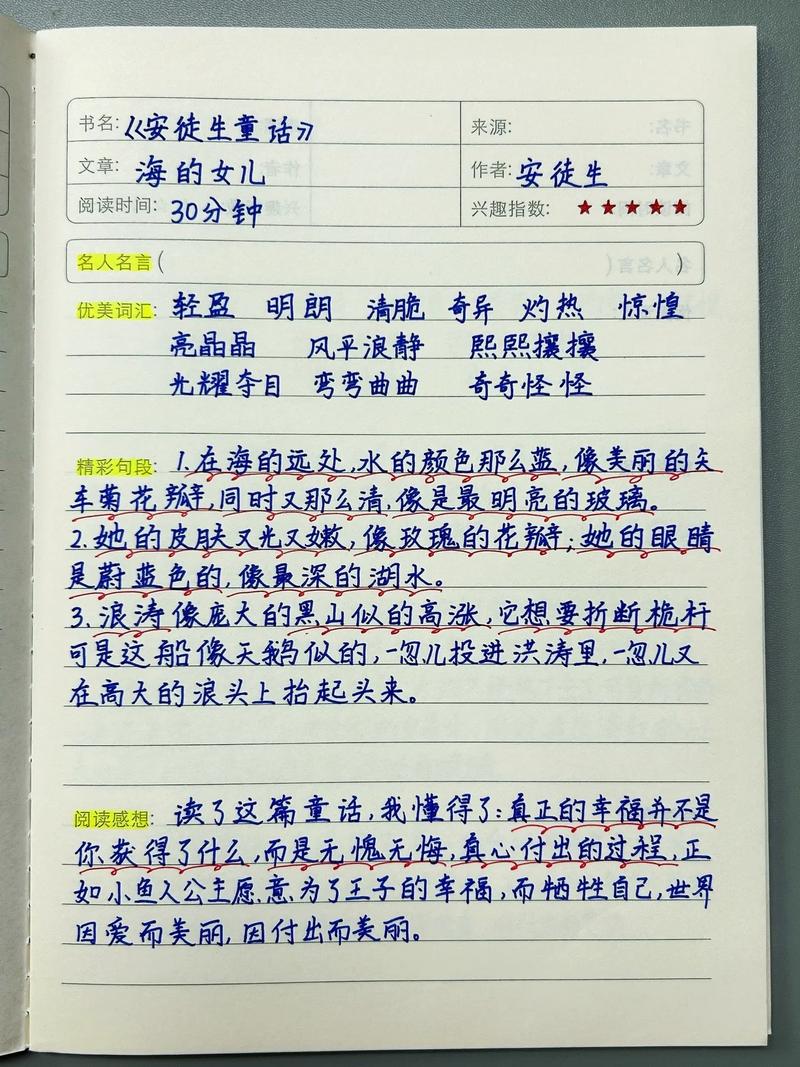 书名: 《安徒生童话》 来源:
文章: 海的女儿 作者: 安徒生
阅读时间: 30分钟 兴趣指数: ★★★★★
名人名言 ( )
优美词汇: 轻盈 明朗 清脆 奇异 灼热 惊惶
亮晶晶 风平浪静 熙熙攘攘
光耀夺目 弯弯曲曲 奇奇怪怪
精彩句段: 1.在海的远处,水的颜色那么蓝,像美丽的矢
车菊花瓣,同时又那么清,像是最明亮的玻璃。
2.她的皮肤又光又嫩,像玫瑰的花瓣;她的眼睛
是蔚蓝色的,像最深的湖水。
3.浪涛像庞大的黑山似的高涨,它想要折断桅杆
可是这船像天鹅似的,一忽儿投进洪涛里,一忽儿又
在高大的浪头上抬起头来。
阅读感想: 读了这篇童话,我懂得了:真正的幸福并不是
你获得了什么,而是无愧无悔,真心付出的过程,正
如小鱼人公主愿意为了王子的幸福,而牺牲自己,世界
因爱而美丽,因付出而美丽。